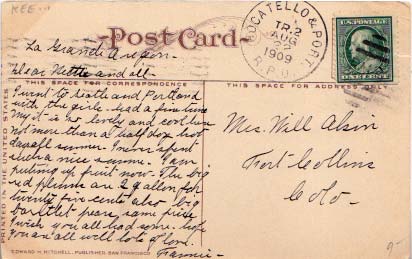 KEE—
Post Card
POCATELLO & PORT.
TR 2
AUG
22
1909
R.P.O.
U.S. POSTAGE
ONE CENT
La Grand Oregon.
Dear Nettie and all—
THIS SPACE FOR CORRESPONDENCE
THIS SPACE FOR ADDRESS ONLY
I went to Seattle and Portland
with the girls. had a fine time
My it is so lovely and cool here
not more than a half doz hot
days all summer. I never spent
such a nice summer. I am
putting up fruit now. The big
red plums are 2 gallon for
twenty five cents also big
bartlet pears, same price
I wish you all had some. hope
you are all well lots of love.
Fannie—
Mrs. Will Alsin
Fort Collins
Colo—
PRINTED IN THE UNITED STATES
EDWARD H. MITCHELL, PUBLISHER, SAN FRANCISCO